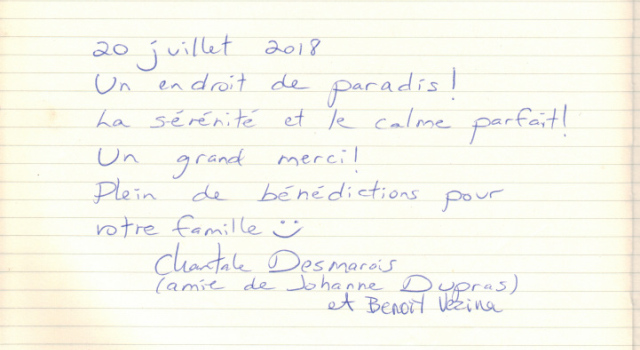 20 juillet 2018
Un endroit de paradis!
La sérénité et le calme parfait!
Un grand merci!
Plein de bénédictions pour
votre famille :)
Chantale Desmarais
(amie de Johanne Dupras)
et Benoît Vézina